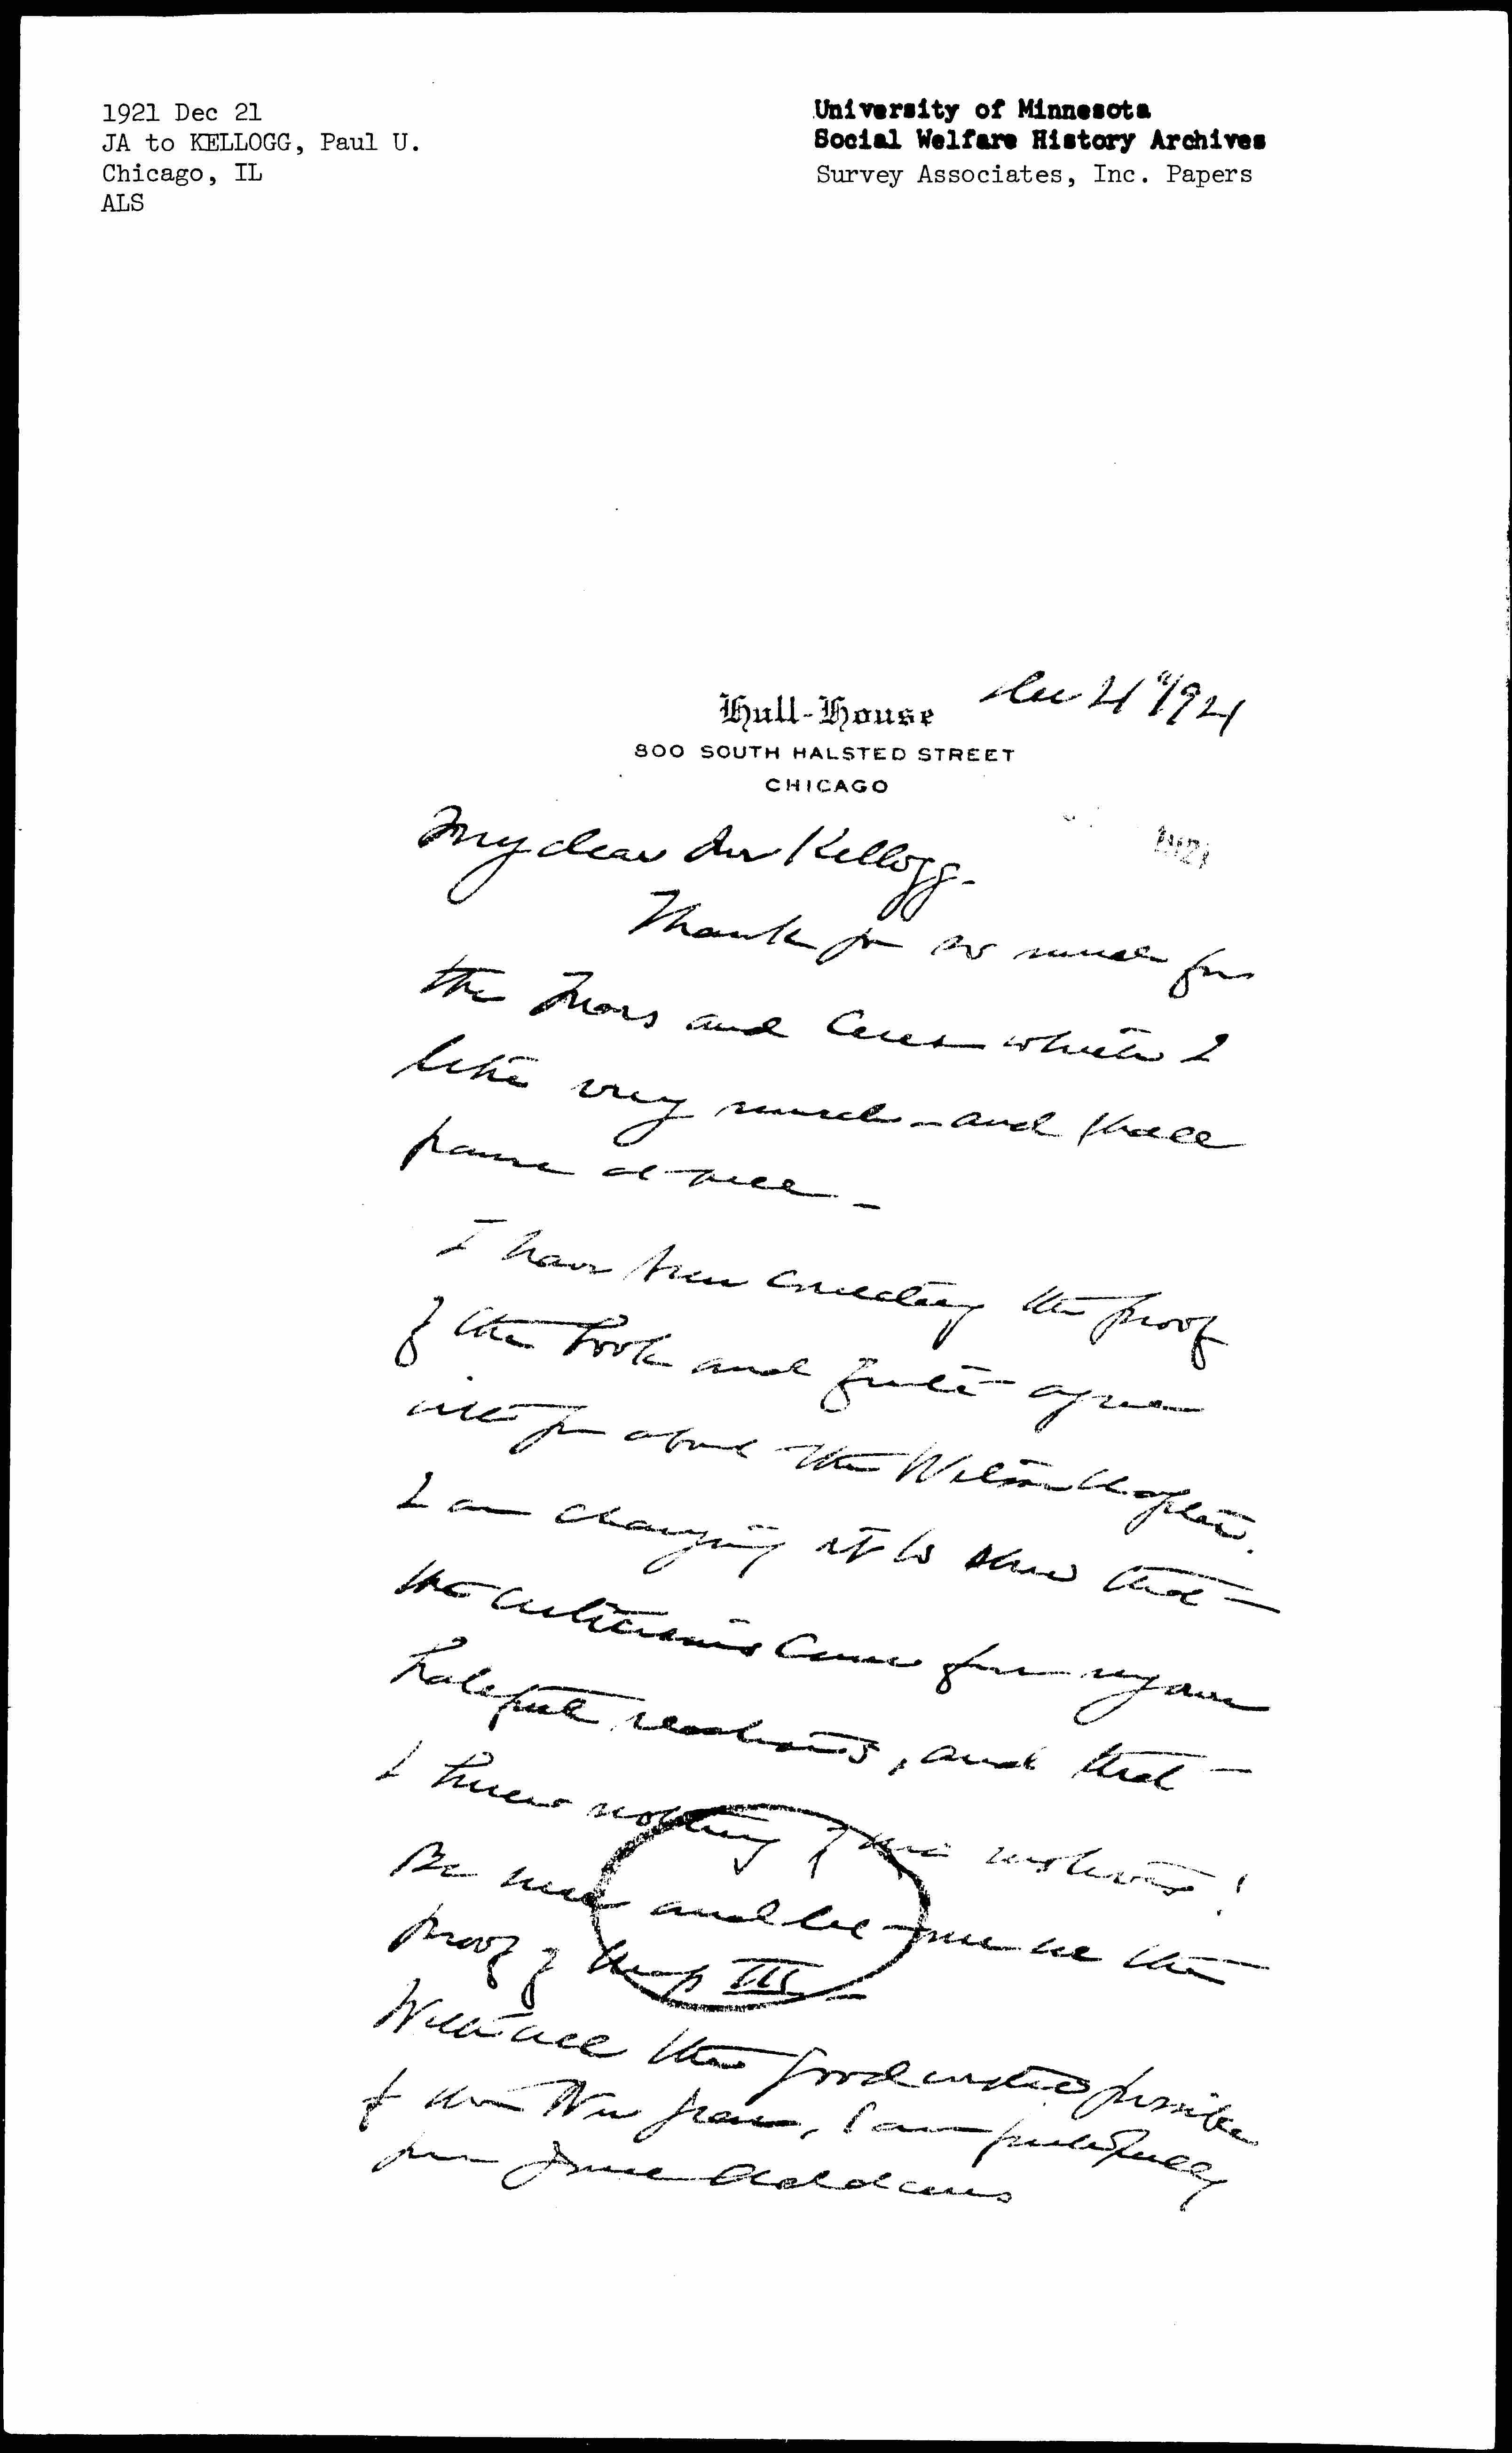 1921 Dec 21
JA to KELLOGG, Paul U.
Chicago, IL
ALS
University of Minnesota
Social Welfare History Archives
Survey Associates, Inc. Papers
Hull-House
Dec 21" 1921
800 SOUTH HALSTED STREET
CHICAGO
1921
My dear Mr Kellogg.
Thank you so much for
the Mars and Ceres which I
like very much - and shall
frame at
I have been correcting the proof
of the book and quite agree
with you about the Wilson Chapter.
I am changing it to show that
the criticisms came from my own
reactions, and that
I knew nothing of his motives!
Be nice and let me see the
proof of Chap III -
With all the good wishes possible
for the New Year, I am faithfully
yours Jane Addams